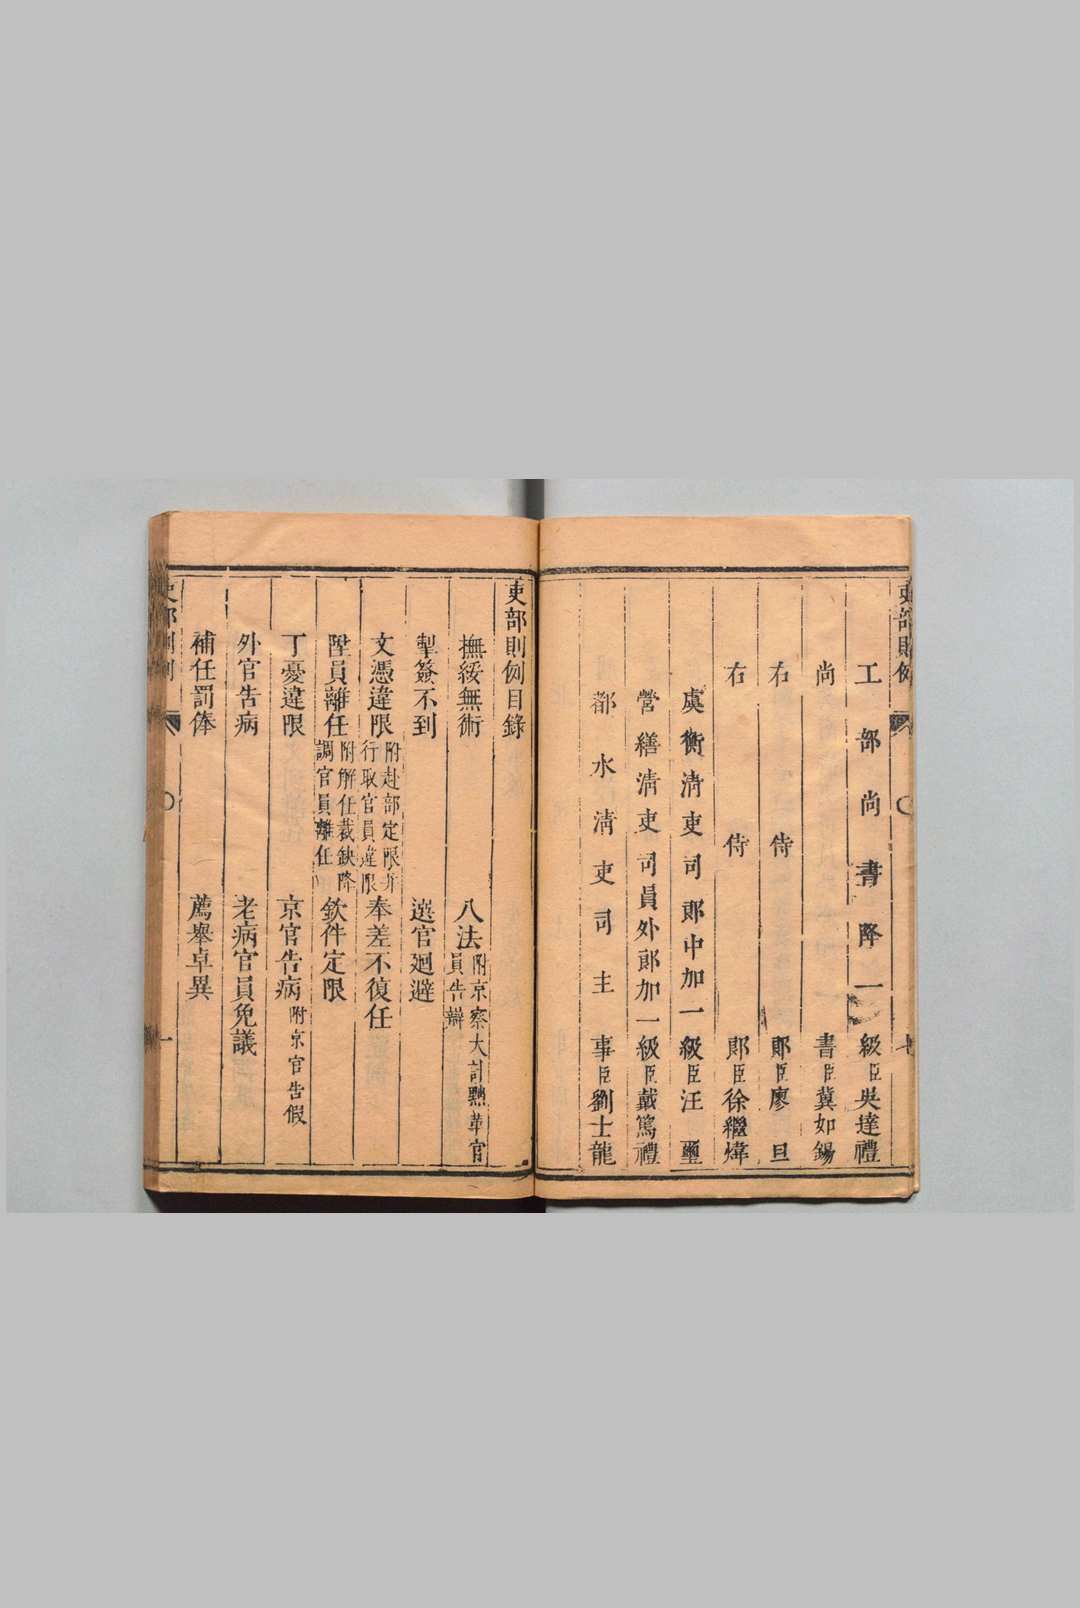 吏部則例
工部尚書降一級臣吳達禮
尚書臣冀如錫
右侍郎臣廖旦
右侍郎臣徐繼煒
虞衡清吏司郎中加一級臣汪璽
營繕清吏司員外郎加一級臣戴篤禮
都水清吏司主事臣劉士龍
吏部則例目錄
撫綏無術 八法附京察大計黜革官員告辯
掣簽不到 選官廻避
文憑違限附赴部定限并行取官員違限 奉差不復任
陞員離任附解任裁缺降調官員離任 欽件定限
丁憂違限 京官告病附京官告假
外官告病 老病官員免議
補任罰俸 薦舉卓異
吏部則例 一